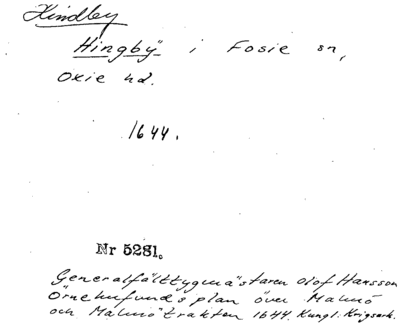 Hindby
Hingbÿ i Fosie sn,
Oxie hd.
1644.
Nr 5281.
Generalfälttygmästaren Olof Hansson
Örnehufvuds plan över Malmö
och Malmötrakten 1644. Kungl. Krigsark.